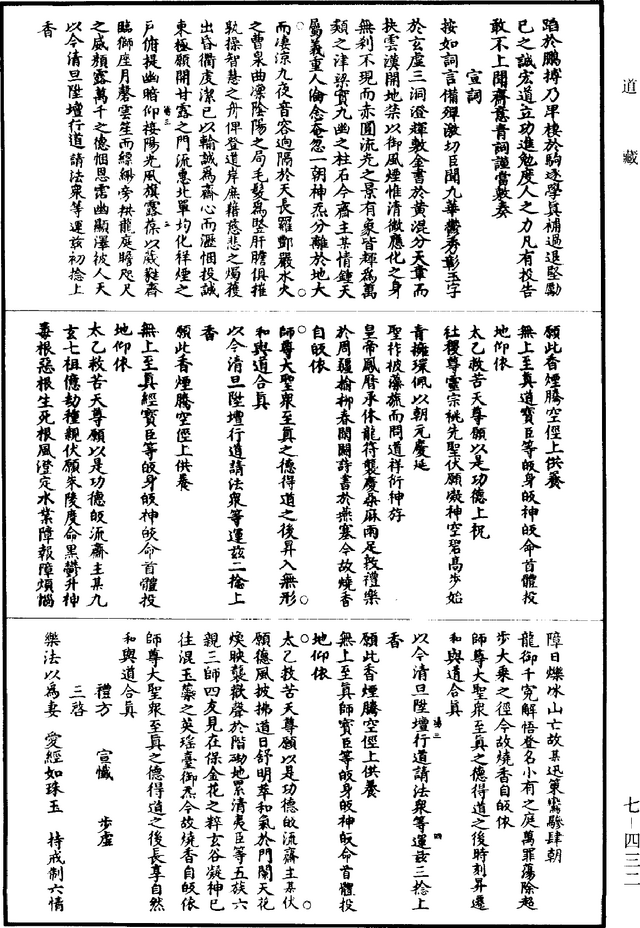 道藏
蹈於鵬搏乃早棲於駒逐學真補過退堅勵
已之誠宏道立功進勉度人之力凡有投告
敢不上聞齋意青詞謹當敷奏
宣詞
按如詞言備殫激切臣聞九華欝秀彰玉字
於玄虛三洞澄輝敷金書於黄混分天章而
挾雲漢開地禁以御風煙惟清微應化之身
無刹不現而赤圓流光之景有象皆輝為萬
類之津梁實九幽之柱石今齋主某情鍾天
屬義重人倫念奄忽一朝神炁分離於地大
而凄涼九夜音容迥隔於天長羅酆嚴水火
之曹泉曲凛陰陽之局毛髮為竪肝膽俱摧
歘操智慧之舟俾登道岸庶藉慈悲之燭獲
出昏衢虔潔已以輸誠為齋心而瀝悃投誠
東極願開甘露之門流惠北單均化祥煙之
戶俯提幽暗仰接陽光風旗露葆以葳蕤齋
臨獅座月磬雲笙而縹緲旁拱龍庭瞻咫尺
之威顔露萬千之德悃恩霑幽顯澤被人天
以今清旦陞壇行道請法衆等運兹初捻上
香
願此香煙騰空徑上供養
無上至真道寶臣等皈身皈神皈命首體投
地仰依
太乙救苦天尊願以是功德上祝
社稷尊靈宗祧先聖伏願凝神空碧高步始
青擁璨佩以朝元慶延
聖祚披藻旒而問道祥衍神孫
皇帝鳳曆承休龍符襲慶桑麻雨足敦禮樂
於周疆榆柳春閑闢詩書於燕塞今故燒香
自皈依
師尊大聖衆至真之德得道之後昇入無形
和與道合真
以今清旦陞壇行道請法衆等運兹二捻上
香
願此香煙騰空徑上供養
無上至真經寶臣等皈身皈神皈命首體投
地仰依
太乙救苦天尊願以是功德皈流齋主某九
玄七祖億劫種親伏願朱陵度命黑欝升神
毒根惡根生死根風澄定水業障報障煩惱
障日爍冰山亡故某迅策鸞驂肆朝
龍御千冤解悟登名小有之庭萬罪蕩除超
步大乘之徑今故燒香自皈依
師尊大聖衆至真之德得道之後時刻昇遷
和與道合真
以今清旦陞壇行道請法衆等運兹三捻上
香
願此香煙騰空徑上供養
無上至真師寶臣等皈身皈神皈命首體投
地仰依
太乙救苦天尊願以是功德皈流齋主某伏
願德風披拂道日舒明萃和氣於門闌天花
煥映襲歡聲於階砌地累清夷臣等五族六
親三師四友見在保金花之粹玄谷凝神已
往混玉蘂之英瑶臺御炁今故燒香自皈依
師尊大聖衆至真之德得道之後長享自然
和與道合真
禮方　宣懺　步虛
三啓
樂法以為妻　愛經如珠玉　持戒制六情
七–四三二